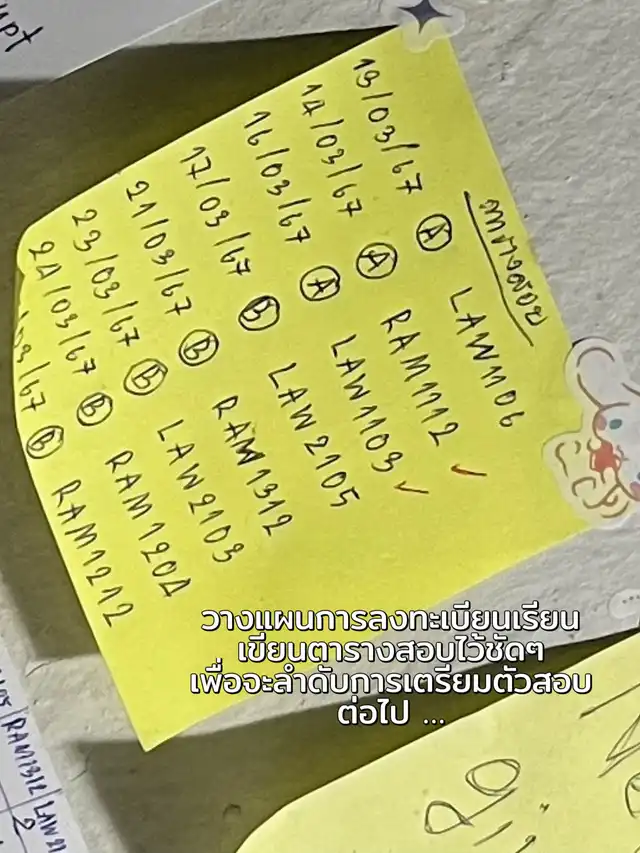 ตารางสอบ
13/03/67 (A) LAW1106
14/03/67 (A) RAM1112 ✓
16/03/67 (A) LAW1103 ✓
17/03/67 (B) LAW2105
21/03/67 (B) RAM1312
23/03/67 (B) LAW2103
24/03/67 (B) RAM1204
/03/67 (B) RAM1212
วางแผนการลงทะเบียนเรียน
เขียนตารางสอบไว้ชัดๆ
เพื่อจะลำดับการเตรียมตัวสอบ
ต่อไป ...
RAM1312/LAW
2